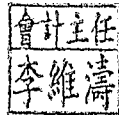 會計主任
李維濤